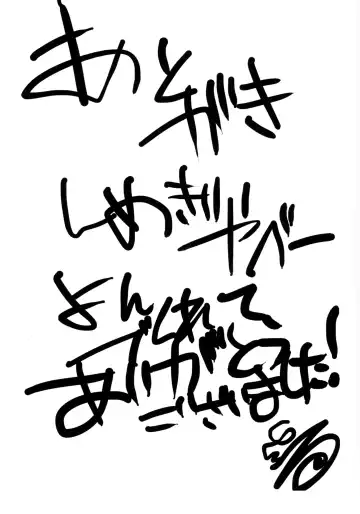 あとがき
しめきりヤベー
よんでくれて
ありがとう
ございました!